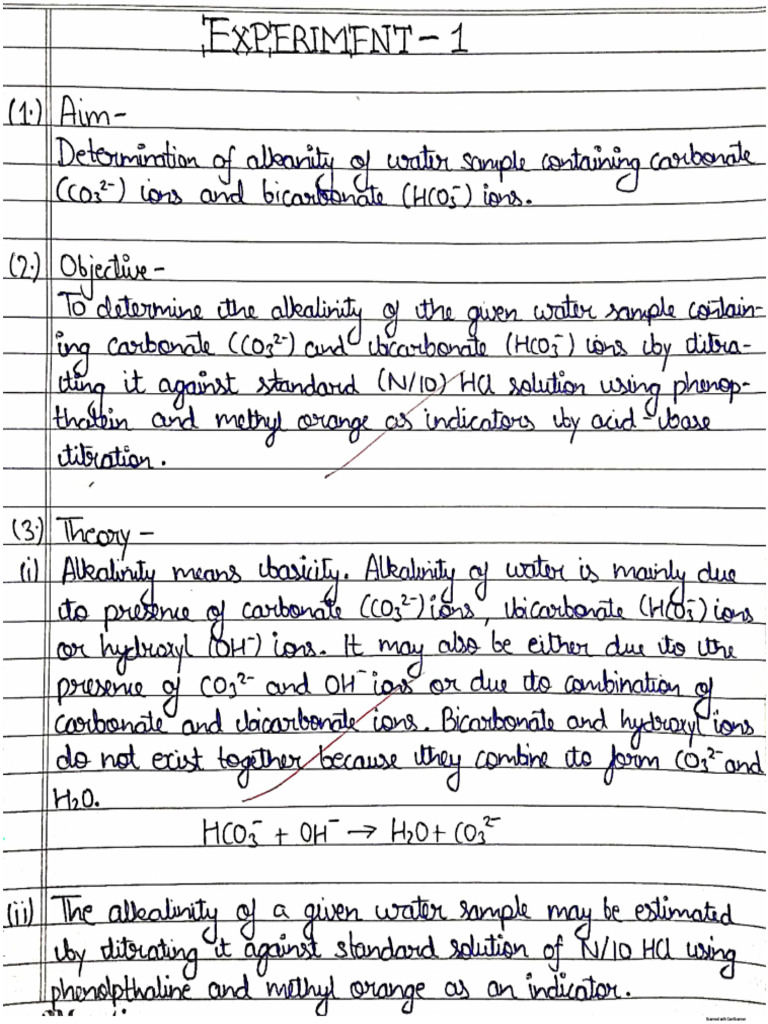 EXPERIMENT - 1
(1.) Aim -
Determination of alkanity of water sample containing carbonate
(CO₃²⁻) ions and bicarbonate (HCO₃⁻) ions.
(2.) Objective -
To determine the alkalinity of the given water sample contain-
ing carbonate (CO₃²⁻) and bicarbonate (HCO₃⁻) ions by ditra-
ting it against standard (N/10) HCl solution using phenop-
thalein and methyl orange as indicators by acid-base
titration.
(3.) Theory -
(i) Alkalinity means basicity. Alkalinity of water is mainly due
to presence of carbonate (CO₃²⁻) ions, bicarbonate (HCO₃⁻) ions
or hydroxyl (OH⁻) ions. It may also be either due to the
presence of CO₃²⁻ and OH⁻ ions or due to combination of
carbonate and bicarbonate ions. Bicarbonate and hydroxyl ions
do not exist together because they combine to form CO₃²⁻ and
H₂O.
HCO₃⁻ + OH⁻ → H₂O + CO₃²⁻
(ii) The alkalinity of a given water sample may be estimated
by ditrating it against standard solution of N/10 HCl using
phenolpthaline and methyl orange as an indicator.
Scanned with CamScanner